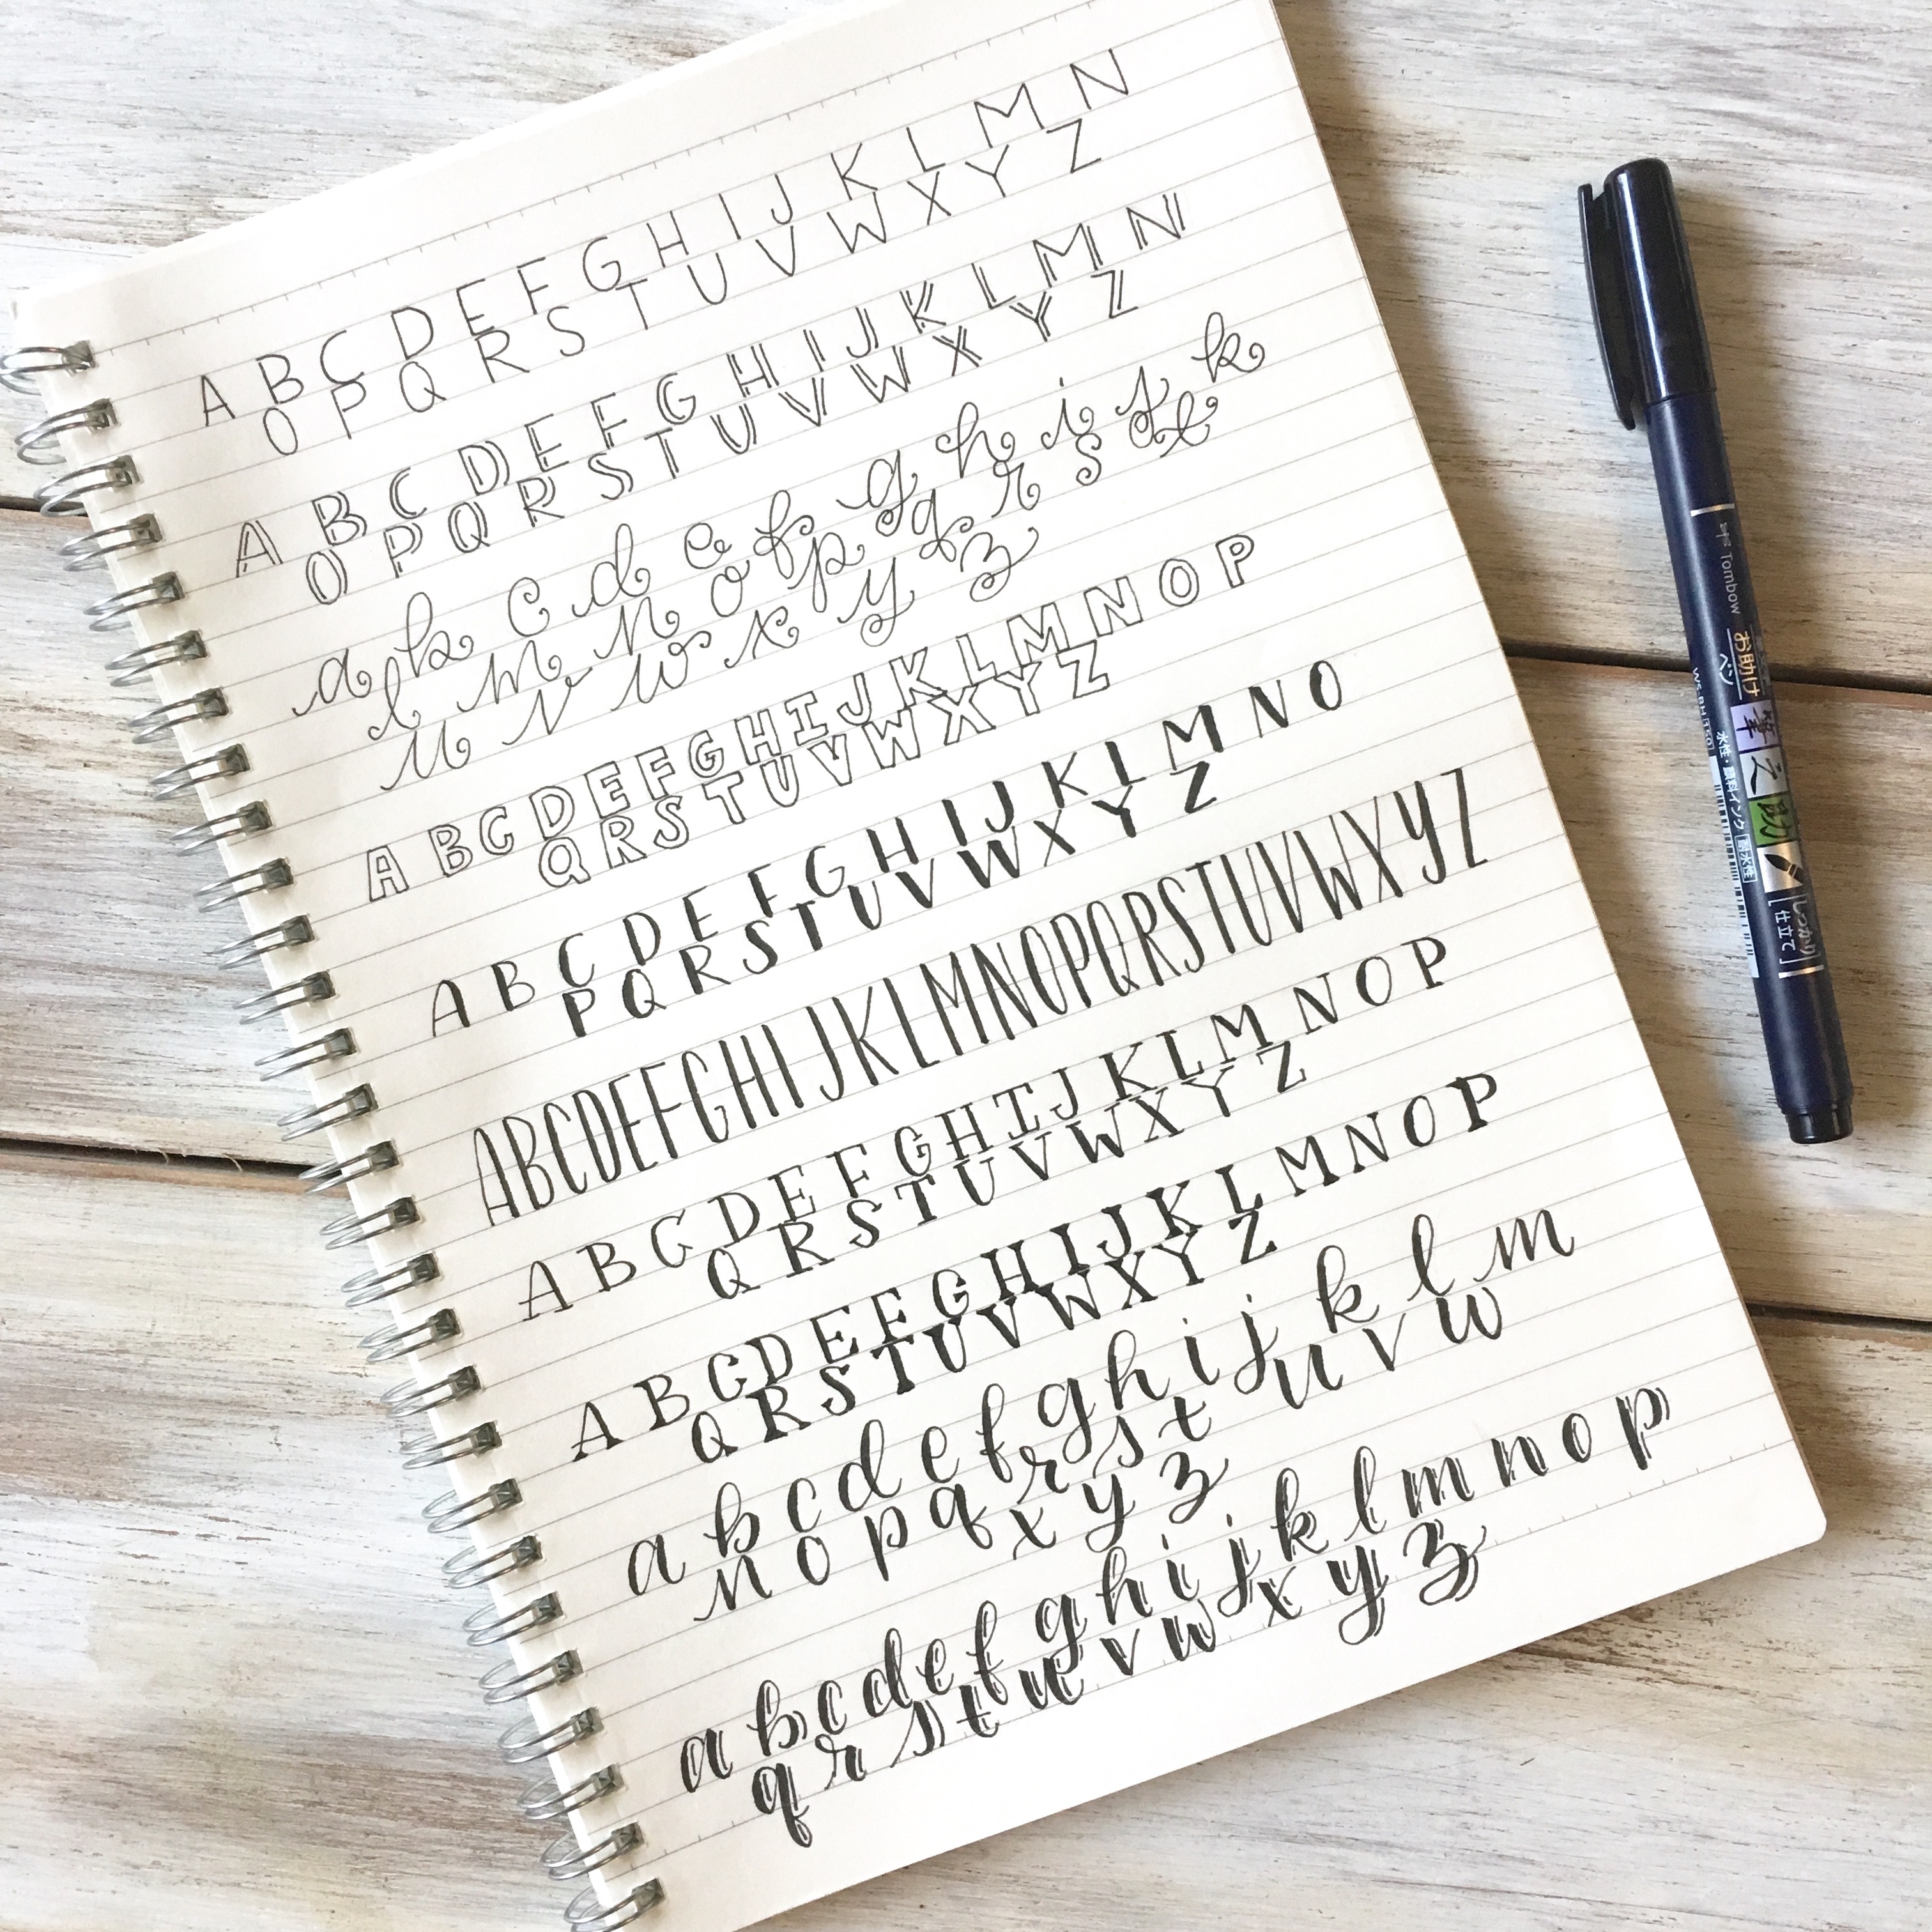 A B C D E F G H I J K L M N
O P Q R S T U V W X Y Z
A B C D E F G H I J K L M N
O P Q R S T U V W X Y Z
a b c d e f g h i j k
l m n o p q r s t
u v w x y z
A B C D E F G H I J K L M N O P
Q R S T U V W X Y Z
A B C D E F G H I J K L M N O
P Q R S T U V W X Y Z
A B C D E F G H I J K L M N O P Q R S T U V W X Y Z
A B C D E F G H I J K L M N O P
Q R S T U V W X Y Z
A B C D E F G H I J K L M N O P
Q R S T U V W X Y Z
a b c d e f g h i j k l m
n o p q r s t u v w
x y z
a b c d e f g h i j k l m n o p
q r s t u v w x y z
Tombow
お助け
ペン
筆之助
しっかり
仕立て